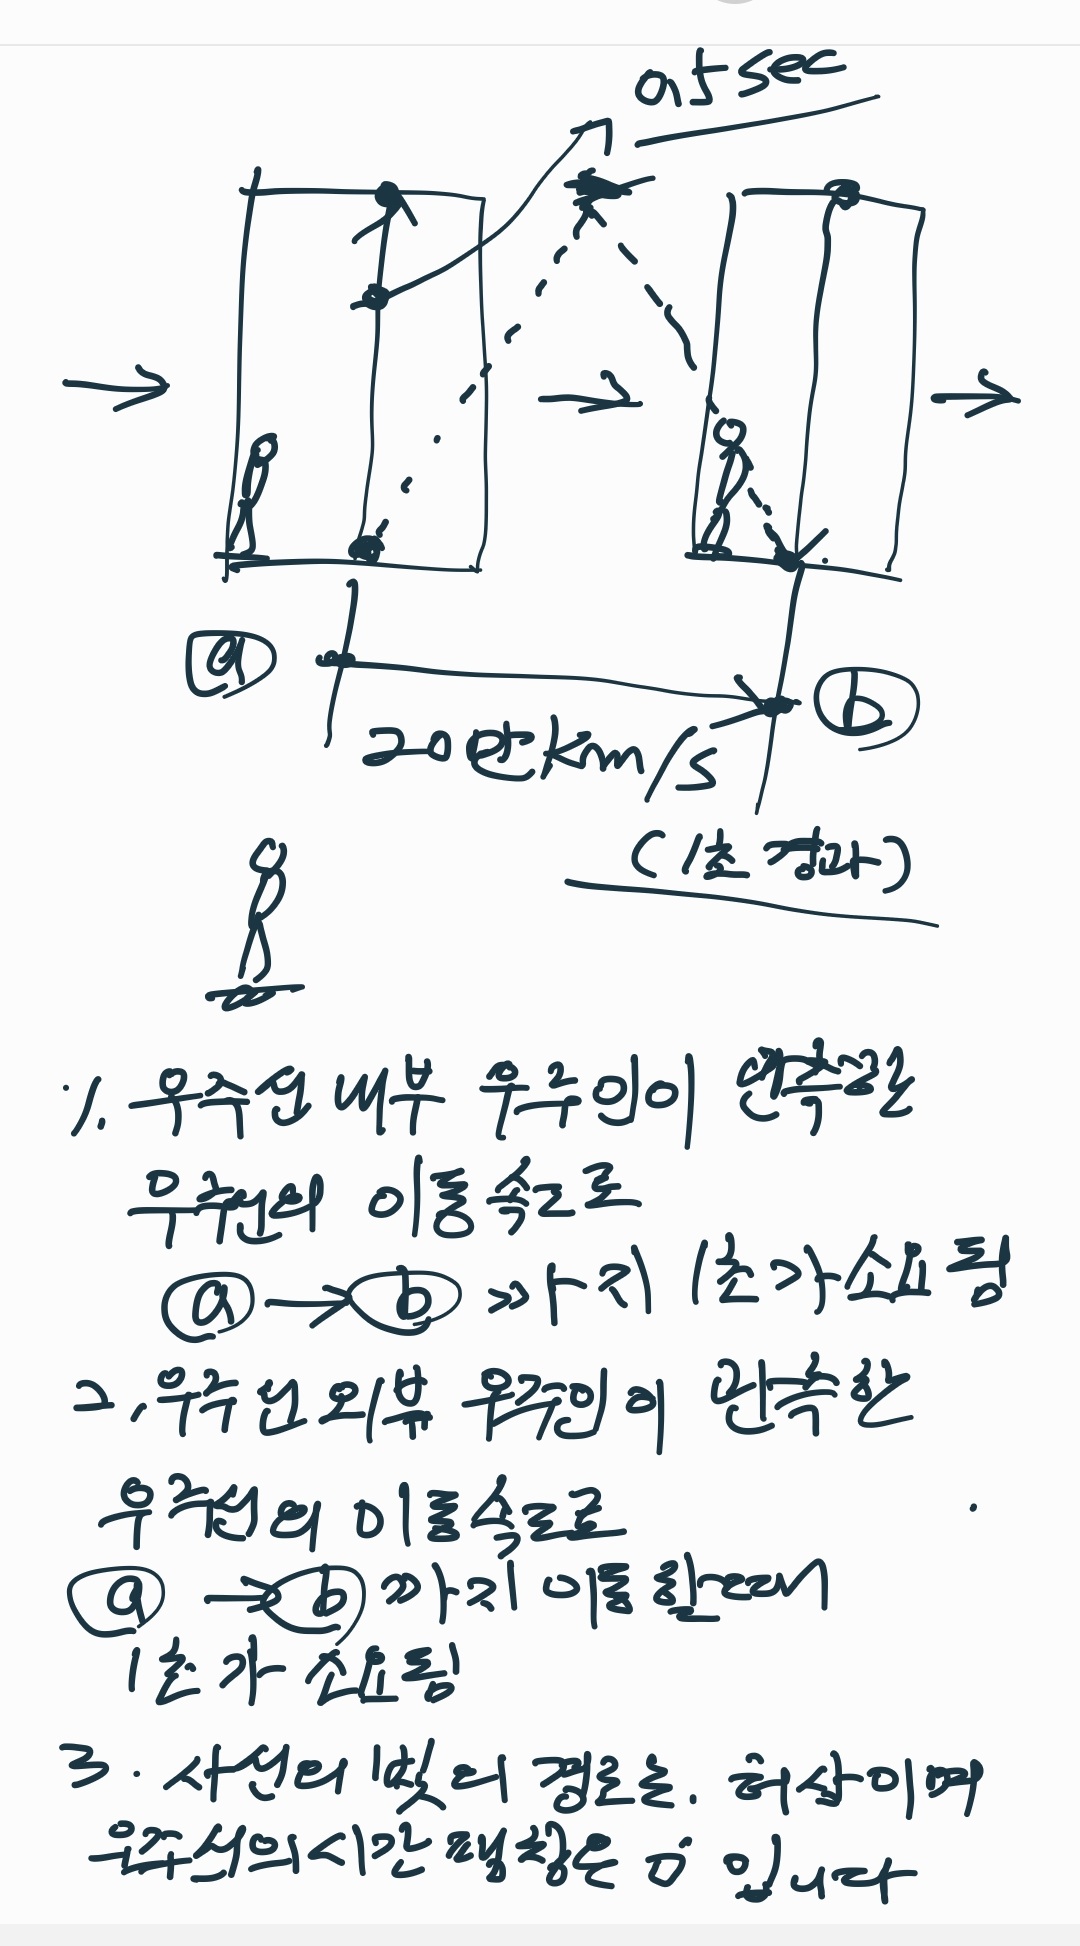 0.5 sec
ⓐ
ⓑ
20만 km/s
(1초 경과)
1. 우주선 내부 우주인이 관측할
우주선의 이동속도로
ⓐ → ⓑ 까지 1초가 소요됨
2. 우주선 외부 우주인이 관측한
우주선의 이동속도로
ⓐ → ⓑ 까지 이동할때
1초가 소요됨
3. 사선의 빛의 경로는. 허상이며
우주선의 시간 팽창은 0 입니다